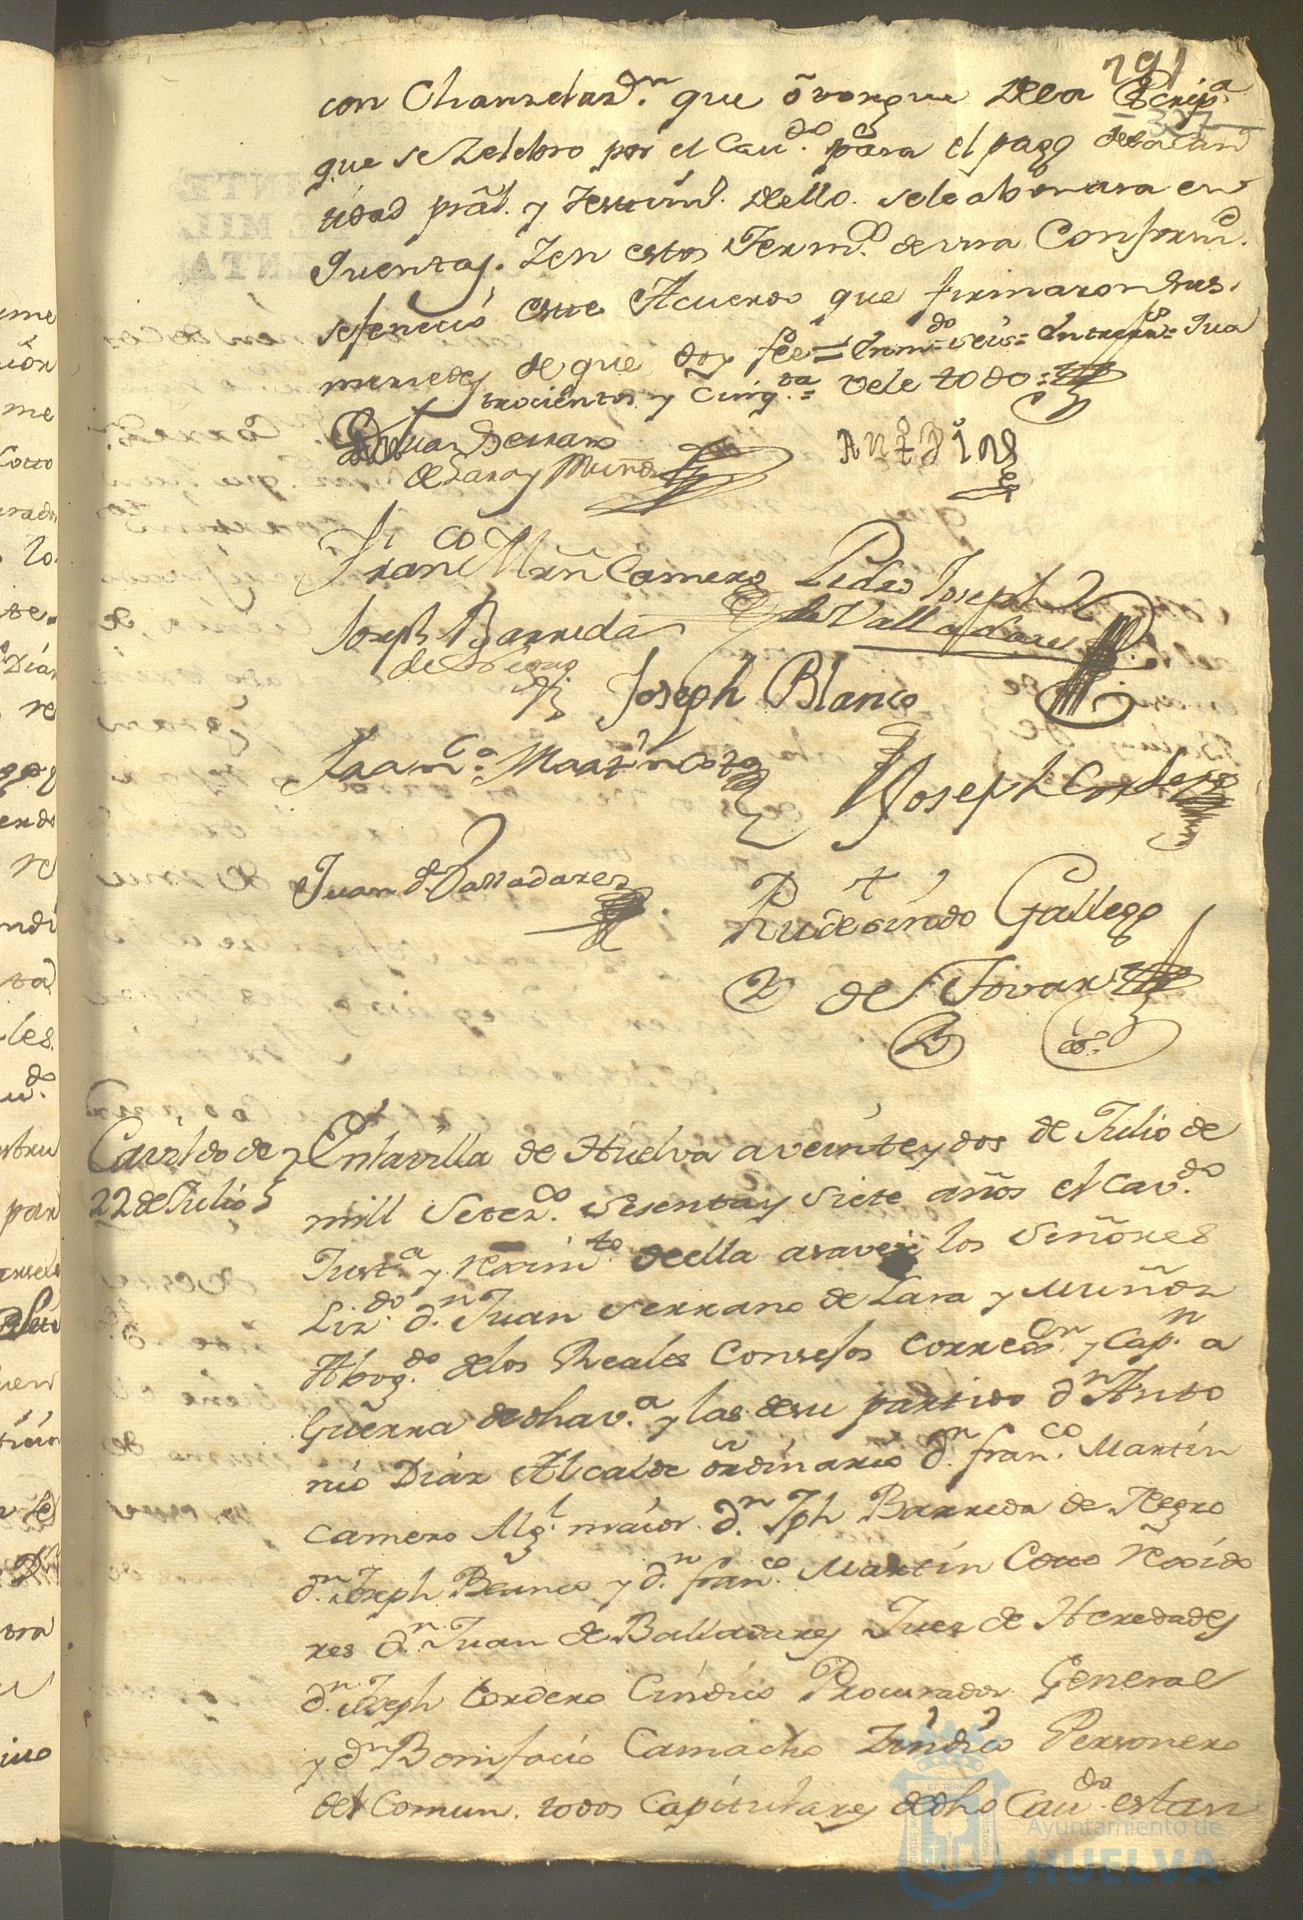 291
con Chanzelazn. que otorgue dela Escripa.
que se Zelebro por el Cavdo. para el pago dela can
tidad pral. y testimo. dello. se le abonara en
quentas. Zen estos Termos. de una Conformd.
sefenecio este Acuerdo que firmaron Sus.
mercedes de que doy fee = Enmdo = seis = Entrerrs = qua
trocientos y cinqta = vele todo =
Dn Juan Serrano
de Lara y Muñoz
Antt Dias
Franco Mrn Camero
Pedro Joseph
de Valladares
Joseph Barreda
de Negro
Joseph Blanco
Franco. Martin Coto
Joseph Cordero
Juan de Valladares
Rudesindo Gallego
de Tovar
Cavildo de
22 de Julio
En la villa de Huelva a veinte y dos de Julio de
mill Setezos. Sesenta y Siete años el Cavdo.
Justa. y Reximto deella asaver los Señores
Lizdo. dn. Juan Serrano de Lara y Muñoz
Abogdo. de los Reales Consejos Corregor. y Capn. a
Guerra de dha va. y las de su partido dn. Anto
nio Diaz Alcalde ordinario dn. franco. Martin
Camero Algl. maior. dn. Jph Barreda de Negro
dn. Joseph Blanco y dn. franco. Martin Coto Rexido
res dn. Juan de Balladares Juez de Heredades
dn. Joseph Cordero Cindico Procurador General
y dn Bonifacio Camacho Zindico Personero
del Comun. todos Capitulares de dho Cavdo. estan
Ayuntamiento de
HUELVA